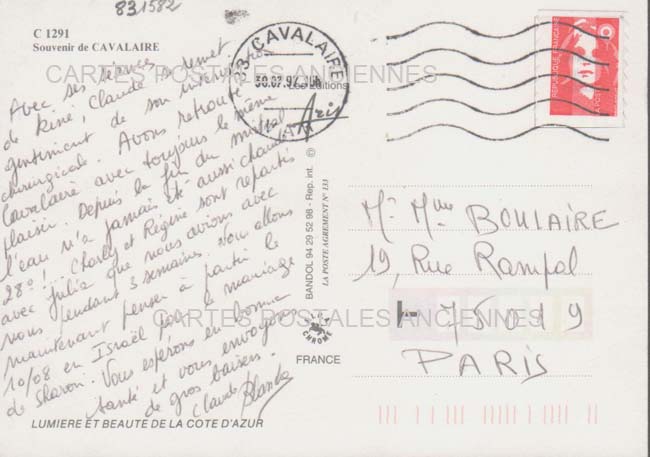 831582
C 1291
Souvenir de CAVALAIRE
Avec ses séances
de kiné, Claude se remet
gentiment de son intervention
chirurgicale. Avons retrouvé
Cavalaire avec toujours le même
plaisir. Depuis la fin du mistral
l'eau n'a jamais été aussi chaude
28° ! Charly et Régine sont repartis
avec Julia que nous avions avec
nous pendant 3 semaines. Nous allons
maintenant penser à partir le
10/08 en Israël pour le mariage
de Sharon. Vous espérons en bonne
santé et vous envoyons
de gros baisers.
Claude Blanche
LUMIERE ET BEAUTE DE LA COTE D'AZUR
83 CAVALAIRE
30.07.92
VAR
Les Editions
Aris
BANDOL 94 29 52 98 - Rep. int. ©
LA POSTE AGREMENT N° 133
FRANCE
REPUBLIQUE FRANCAISE
LA POSTE
Mr Mme BOULAIRE
19, Rue Rampal
75019
PARIS
CARTES POSTALES ANCIENNES
CARTES POSTALES ANCIENNES